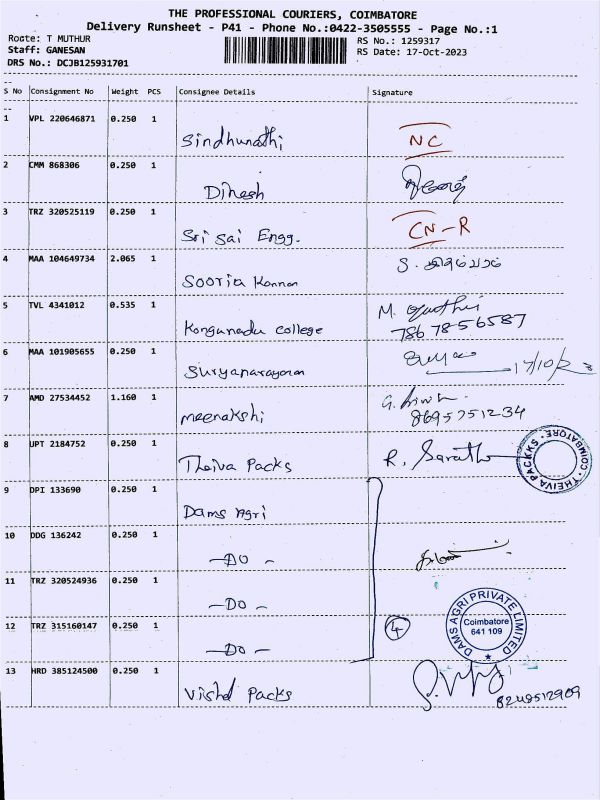 THE PROFESSIONAL COURIERS, COIMBATORE
Delivery Runsheet - P41 - Phone No.:0422-3505555 - Page No.:1
Route: T MUTHUR RS No.: 1259317
Staff: GANESAN RS Date: 17-Oct-2023
DRS No.: DCJB125931701
S No Consignment No Weight PCS Consignee Details Signature
1 VPL 220646871 0.250 1 Sindhunathi NC
2 CMM 868306 0.250 1 Dinesh
3 TRZ 320525119 0.250 1 Sri Sai Engg. CN-R
4 MAA 104649734 2.065 1 Sooria Kannan
5 TVL 4341012 0.535 1 Kongunadu College M.
7867856587
6 MAA 101905655 0.250 1 Suryanarayanan 17/10/23
7 AMD 27534452 1.160 1 meenakshi G.
8695751234
8 UPT 2184752 0.250 1 Theiva Packs R. Sarath
THEIVA PACKKS COIMBATORE
9 DPI 133690 0.250 1 Dams Agri
10 DDG 136242 0.250 1 -DO-
11 TRZ 320524936 0.250 1 -DO-
12 TRZ 315160147 0.250 1 -DO- 4
DAMS AGRI PRIVATE LIMITED
Coimbatore
641 109
13 HRD 385124500 0.250 1 Vishal Packs
8248512909